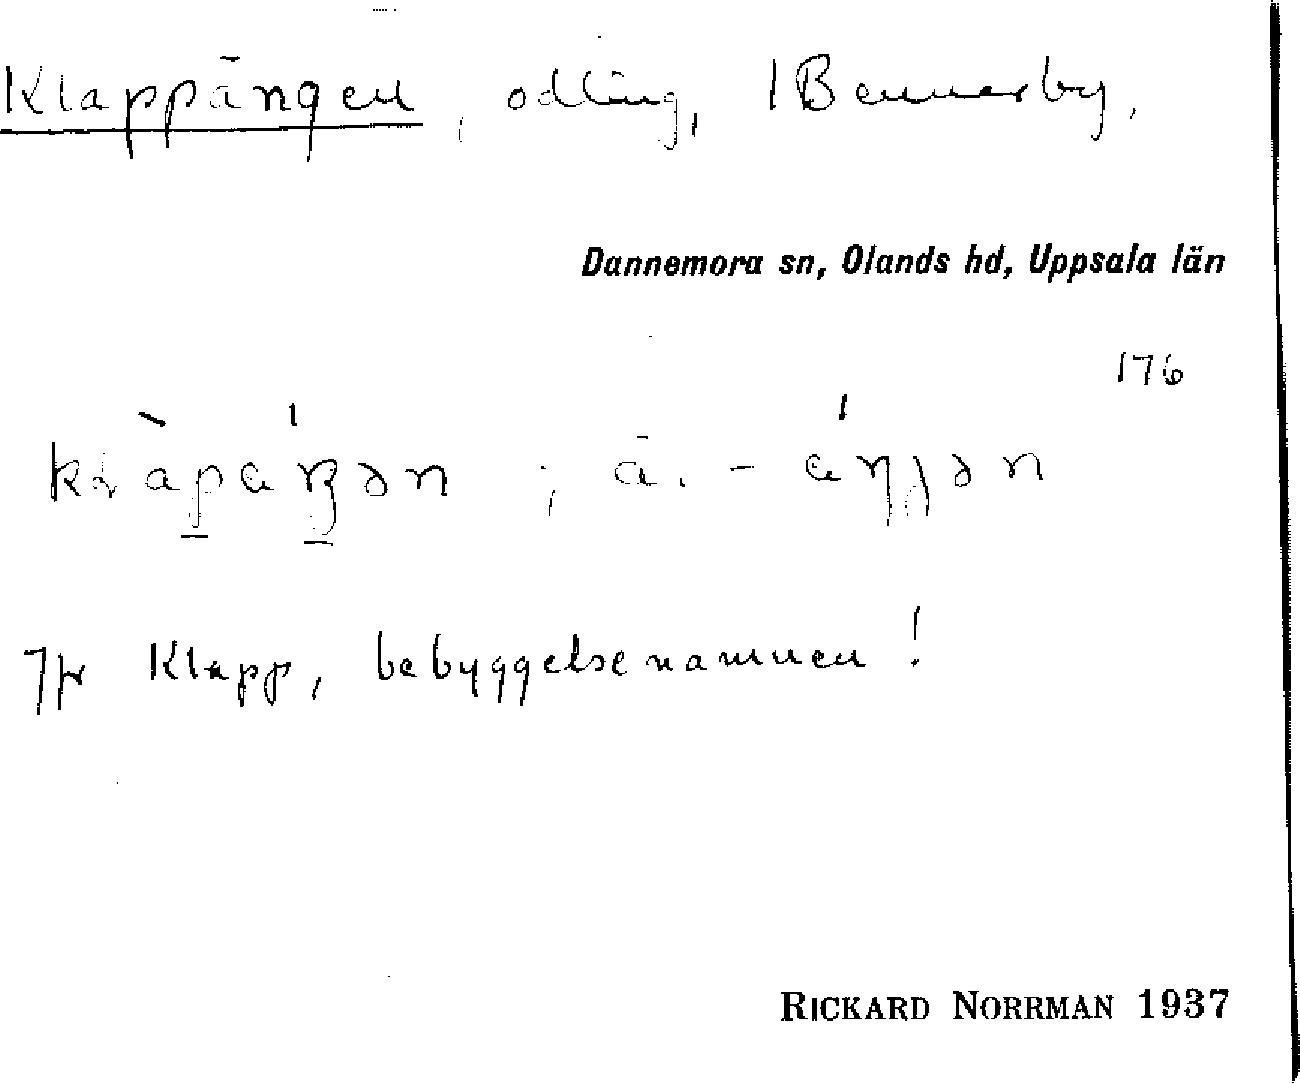 Klappängen, odling, 1 Bennerby,
Dannemora sn, Olands hd, Uppsala län
176
Jfr Klapp, bebyggelsenamnen!
RICKARD NORRMAN 1937